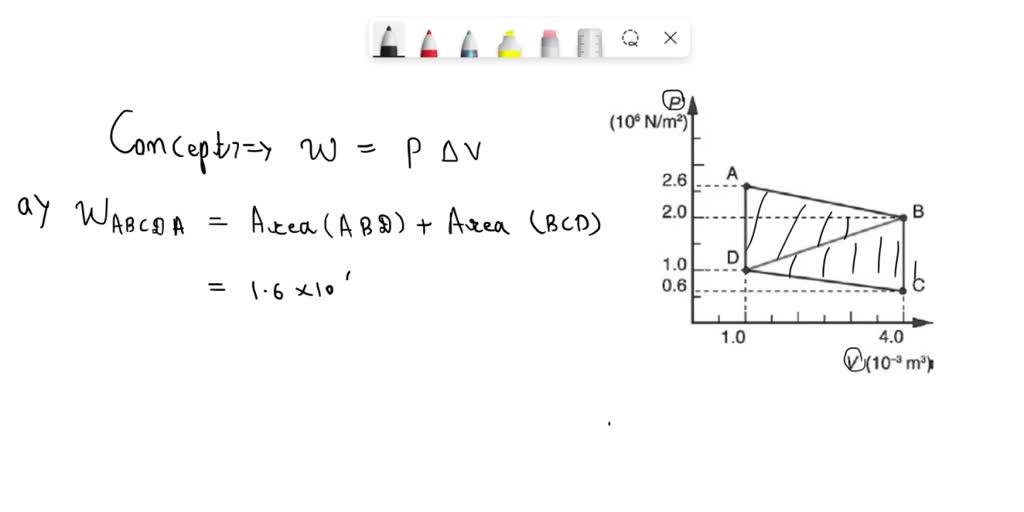 Concept ⇒ W = P ΔV
a) W_ABCDA = Area (ABD) + Area (BCD)
= 1.6 × 10
P
(10⁶ N/m²)
2.6
2.0
1.0
0.6
A
B
D
C
1.0
4.0
V (10⁻³ m³)